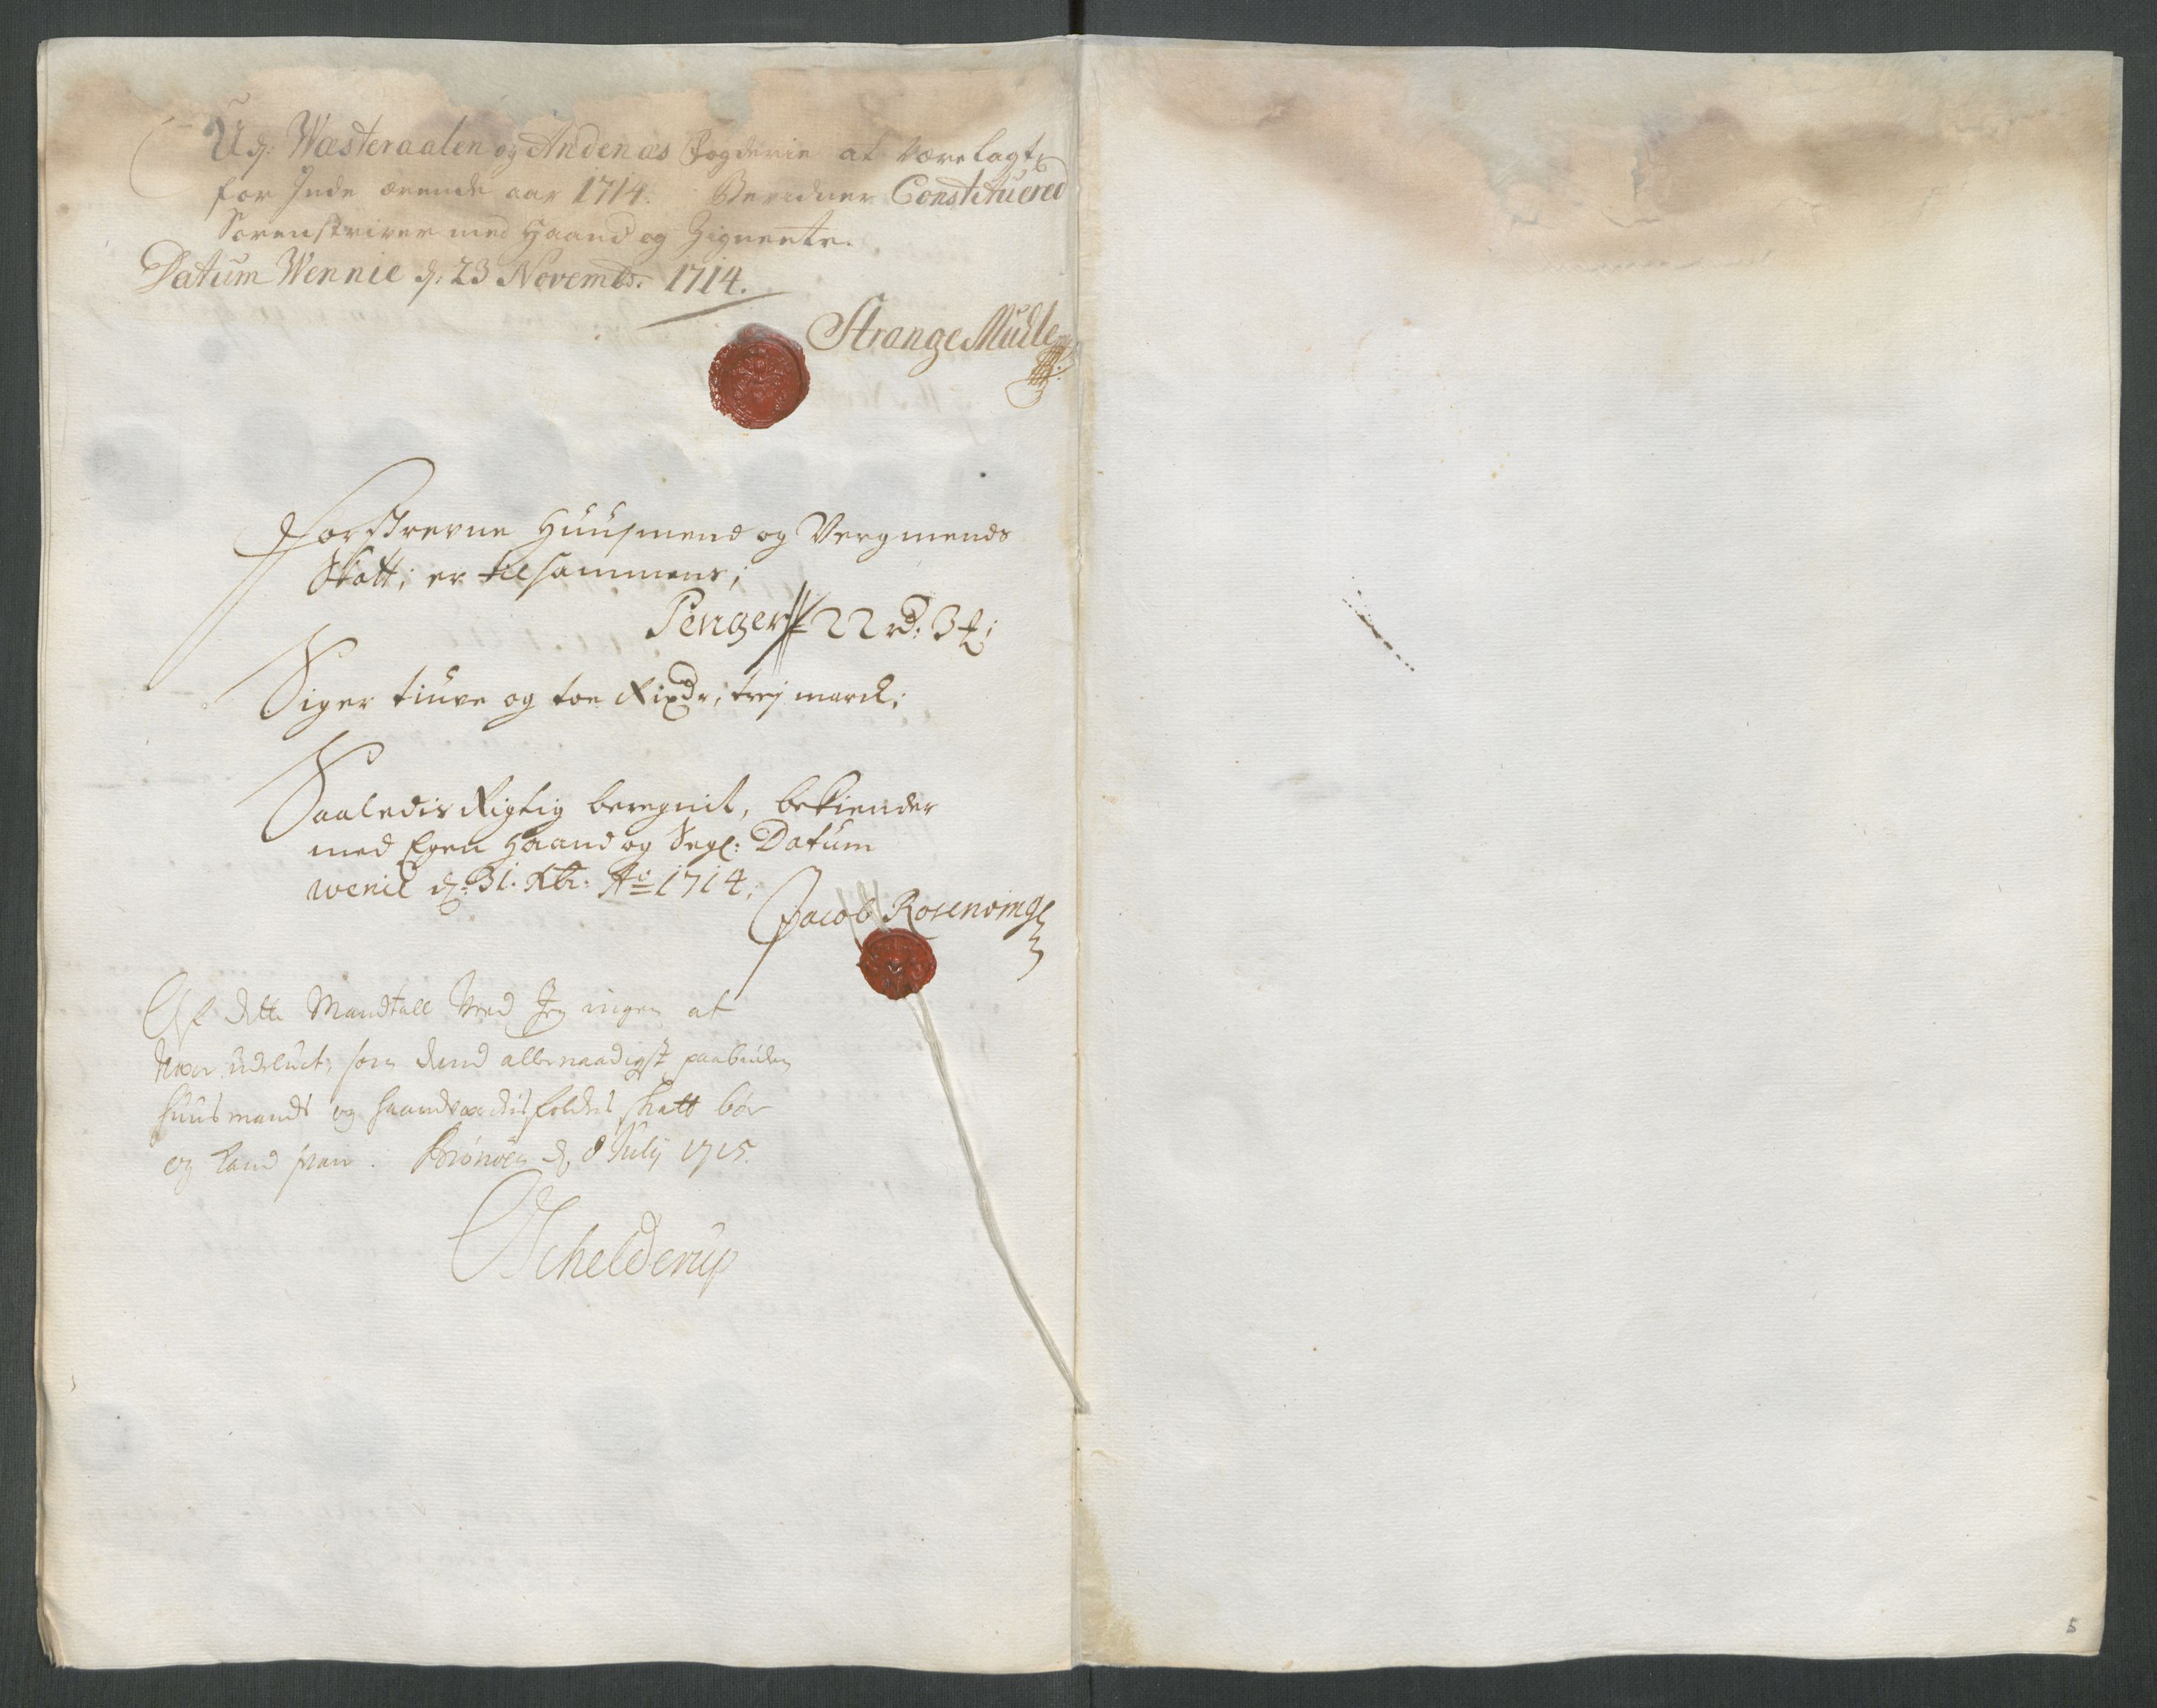 Udj: Wæsteraalen og Andenæs Fogderie at være lagt
for Inde ærende aar 1714. Constituered
Sorenskriver med Haand og Zignete.
Datum Wennie dj: 23 Novembr. 1714.
Strange Mulle
Forskrevne Huusmend og Vergmends
Skatt; er tilsammens;
Penger 22 rd: 3 ℔;
Siger tiuve og toe Rixdr; trej marck;
Saaledis Rigtig beregnit, bekiender
med Egen Haand og Segl: Datum
wenie dj: 31. Xbr: Ao 1714;
Jacob Rosenvinge
Af dette Mandtall Ved Jeg ingen at
Være udeluct, som dend allernaadigst paabudne
huusmands og haandværchsfolches skatt bør
og kand svare. Brønøen d, 8 July 1715.
Schelderup
5